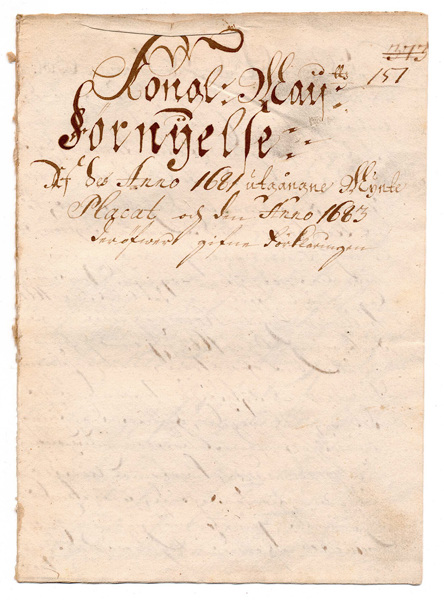 373
151
Kongl: May:tts
Förnÿelse
Af des Anno 1681 utgångne Mynte
Placat, och den Anno 1683
deröfwer gifne Förklaringen